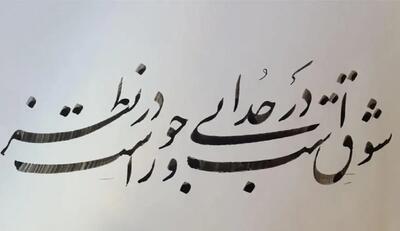 شوق است دَر جُدایی و جور است در نظر